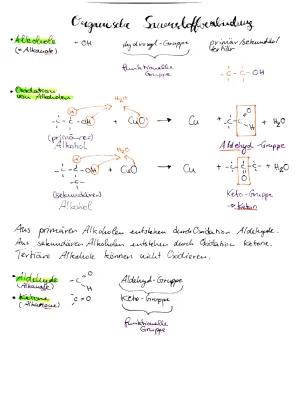 Organische Sauerstoffverbindung
• Alkohole -OH Hydroxyl-Gruppe primär/sekundär/
(= Alkanole) tertiär
funktionelle
Gruppe
-C-C-OH
• Oxidation
von Alkoholen
H₂O
-C-C-OH + CuO → Cu + -C-C O H + H₂O
(primärer)
Alkohol
Aldehyd-Gruppe
H₂O
-C-C-C- OH + CuO → Cu + -C-C-C- O + H₂O
(sekundären)
Alkohol
Keto-Gruppe
→ Keton
Aus primären Alkoholen entstehen durch Oxidation Aldehyde.
Aus sekundären Alkoholen entstehen durch Oxidation Ketone.
Tertiäre Alkohole können nicht Oxidieren.
• Aldehyde -C O H Aldehyd-Gruppe
(Alkanale)
• Ketone C=O Keto-Gruppe
(Alkanone)
funktionelle
Gruppe